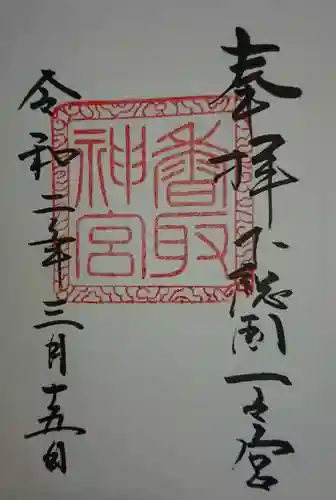 奉拝 下総國一之宮
香取
神宮
令和二年三月十五日